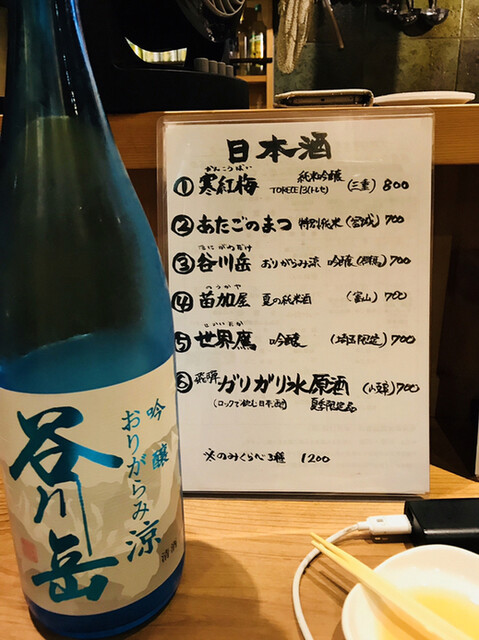 日本酒
かんこうばい
① 寒紅梅 純米吟醸 (三重) 800
② あたごのまつ 特別純米 (宮城) 700
たにがわだけ
③ 谷川岳 おりがらみ涼 吟醸 (群馬) 700
④ 苗加屋 夏の純米酒 (富山) 700
せかいたか
⑤ 世界鷹 吟醸 (埼玉限定) 700
⑥ 飛騨 ガリガリ氷原酒 700
(ロックで飲む日本酒) 夏季限定品
のみくらべ 3種 1200
吟醸
おりがらみ涼
谷川岳
清酒